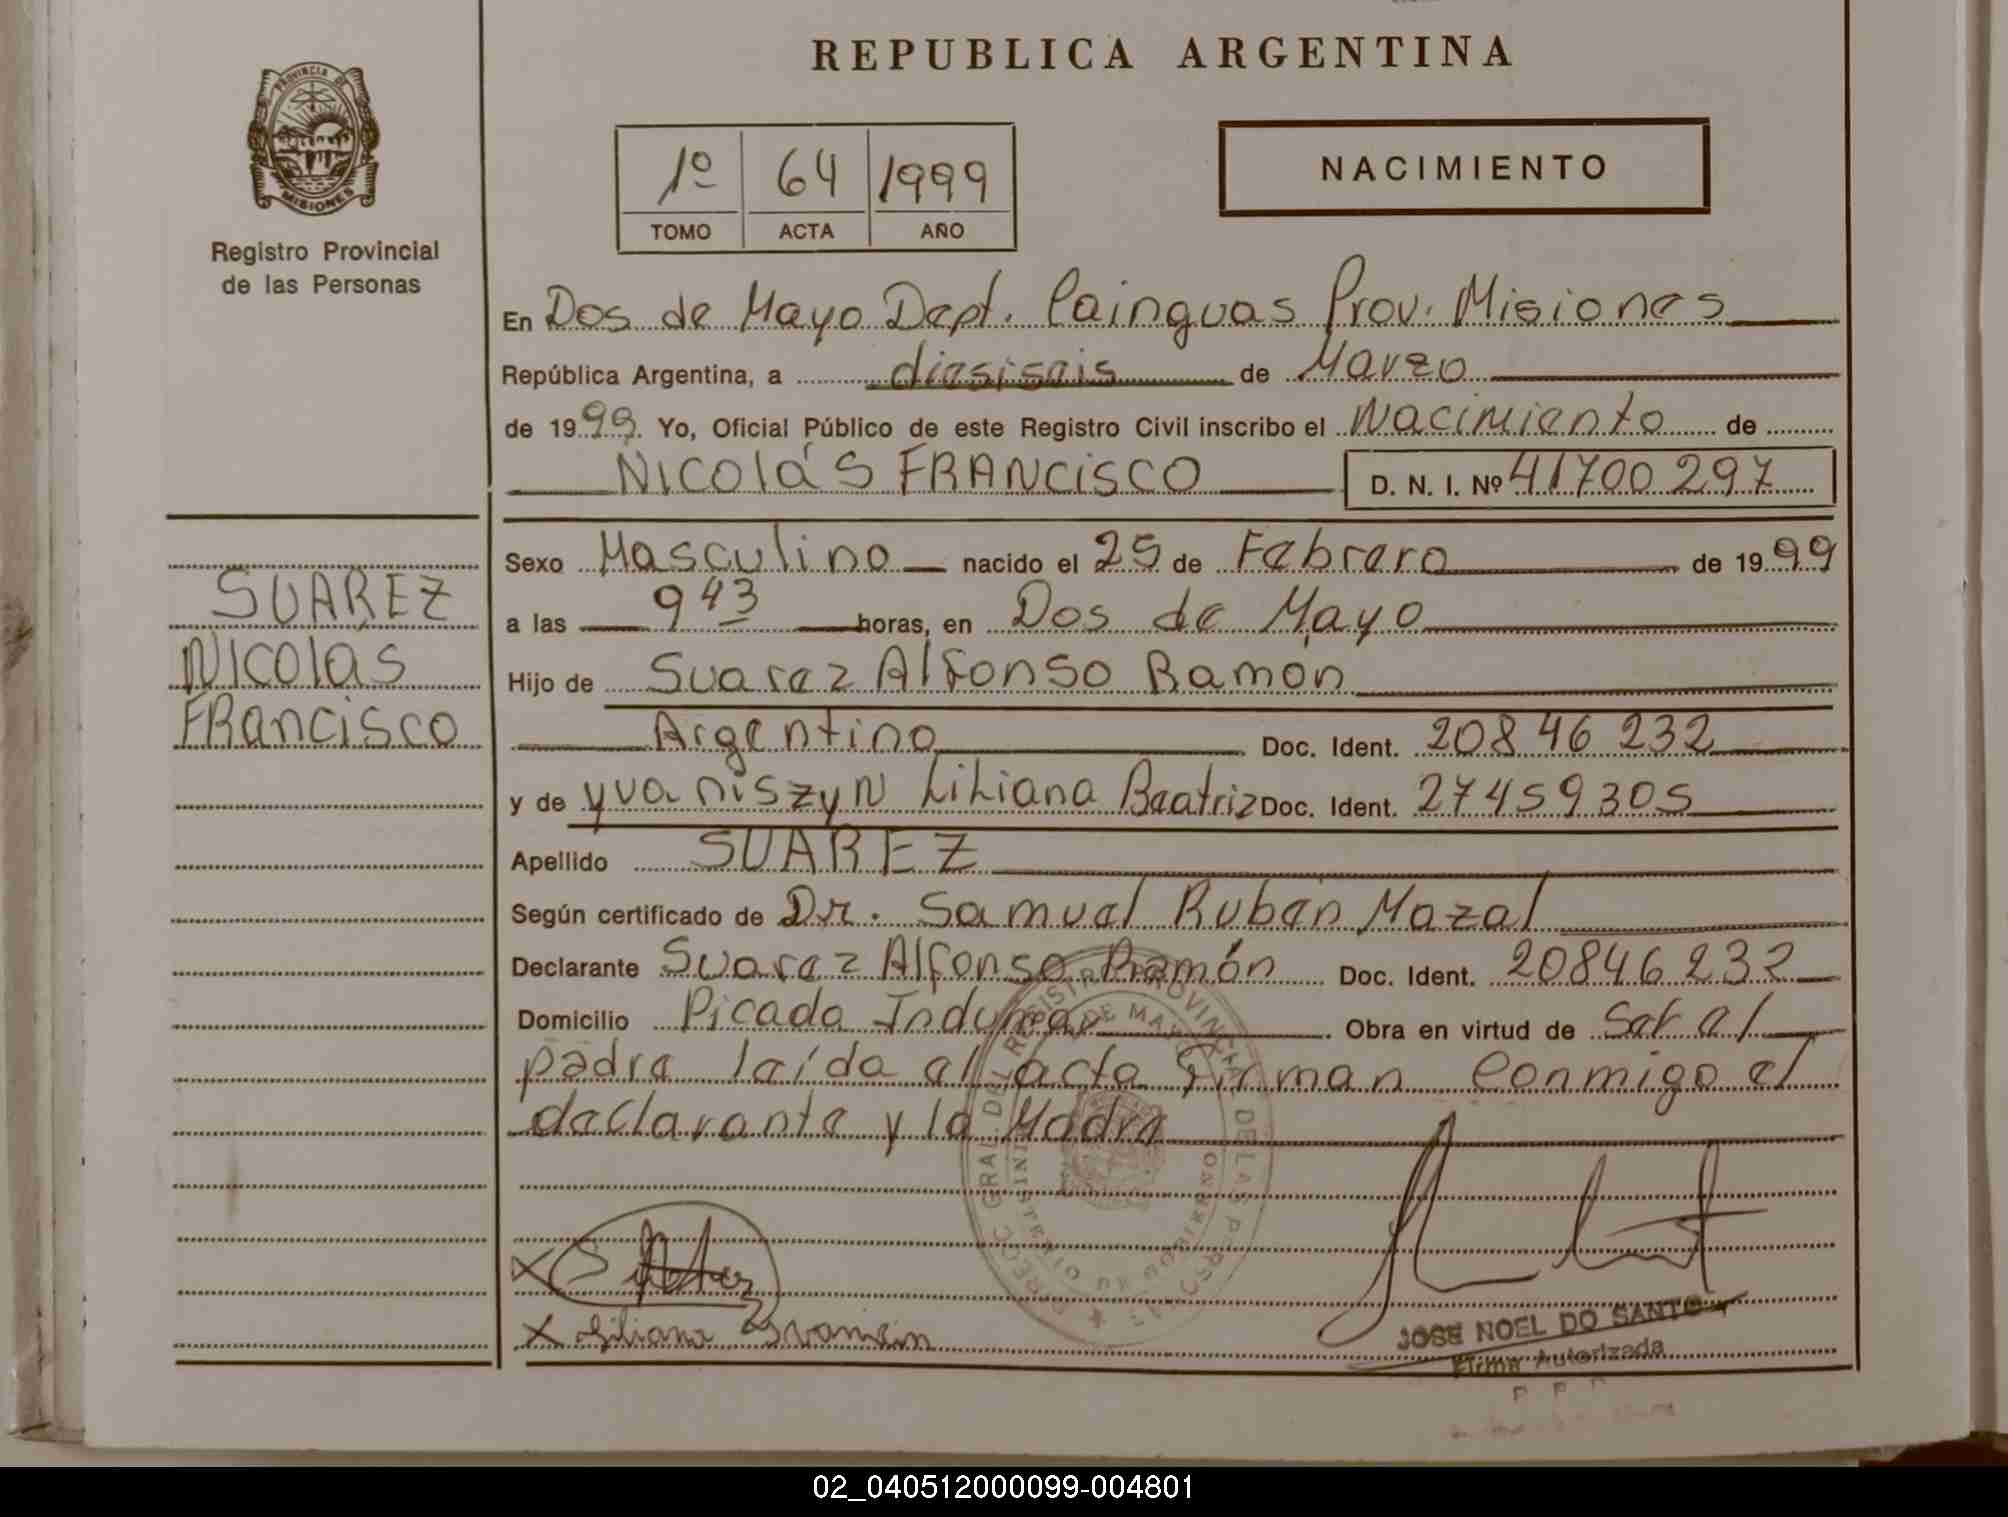 REPUBLICA ARGENTINA
PROVINCIA DE
MISIONES
Registro Provincial
de las Personas
1º 64 1999
TOMO ACTA AÑO
NACIMIENTO
En Dos de Mayo Dept. Cainguas Prov. Misiones
República Argentina, a diesiseis de Marzo
de 1999. Yo, Oficial Público de este Registro Civil inscribo el Nacimiento de
NICOLÁS FRANCISCO D. N. I. Nº 41700 297
SUAREZ
NICOLÁS
FRANCISCO
Sexo Masculino nacido el 25 de Febrero de 1999
a las 9 43 horas, en Dos de Mayo
Hijo de Suarez Alfonso Ramón
Argentino Doc. Ident. 20846 232
y de yvaniszyN Liliana Beatriz Doc. Ident. 27459305
Apellido SUAREZ
Según certificado de Dr. Samuel Rubén Mazal
Declarante Suarez Alfonso Ramón Doc. Ident. 20846232
Domicilio Picada Indumar. Obra en virtud de Ser el
padre leída el acta Firman Conmigo el
declarante y la Madre
DIRECC. GRAL. DEL REGISTRO PROVINCIAL DE LAS PERSONAS
DOS DE MAYO
MINISTERIO DE GOBIERNO
X
X Liliana
JOSE NOEL DO SANTO
Firma Autorizada
02_040512000099-004801